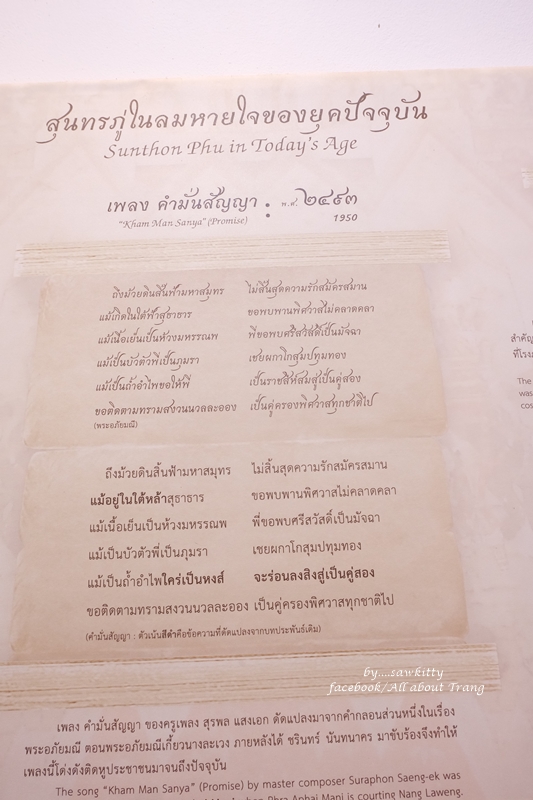 สุนทรภู่ในลมหายใจของยุคปัจจุบัน
Sunthon Phu in Today's Age
เพลง คำมั่นสัญญา : พ.ศ. ๒๔๙๓
"Kham Man Sanya" (Promise) 1950
ถึงม้วยดินสิ้นฟ้ามหาสมุทร ไม่สิ้นสุดความรักสมัครสมาน
แม้เกิดในใต้ฟ้าสุธาธาร ขอพบพานพิศวาสไม่คลาดคลา
แม้เนื้อเย็นเป็นห้วงมหรรณพ พี่ขอพบศรีสวัสดิ์เป็นมัจฉา
แม้เป็นบัวตัวพี่เป็นภุมรา เชยผกาโกสุมปทุมทอง
แม้เป็นถ้ำอำไพขอให้พี่ เป็นราชสีห์สมสู่เป็นคู่สอง
ขอติดตามทรามสงวนนวลละออง เป็นคู่ครองพิศวาสทุกชาติไป
(พระอภัยมณี)
ถึงม้วยดินสิ้นฟ้ามหาสมุทร ไม่สิ้นสุดความรักสมัครสมาน
แม้อยู่ในใต้หล้าสุธาธาร ขอพบพานพิศวาสไม่คลาดคลา
แม้เนื้อเย็นเป็นห้วงมหรรณพ พี่ขอพบศรีสวัสดิ์เป็นมัจฉา
แม้เป็นบัวตัวพี่เป็นภุมรา เชยผกาโกสุมปทุมทอง
แม้เป็นถ้ำอำไพใคร่เป็นหงส์ จะร่อนลงสิงสู่เป็นคู่สอง
ขอติดตามทรามสงวนนวลละออง เป็นคู่ครองพิศวาสทุกชาติไป
(คำมั่นสัญญา : ตัวเน้นสีดำคือข้อความที่ดัดแปลงจากบทประพันธ์เดิม)
by....sawkitty
facebook/All about Trang
เพลง คำมั่นสัญญา ของครูเพลง สุรพล แสงเอก ดัดแปลงมาจากคำกลอนส่วนหนึ่งในเรื่อง
พระอภัยมณี ตอนพระอภัยมณีเกี้ยวนางละเวง ภายหลังได้ ชรินทร์ นันทนาคร มาขับร้องจึงทำให้
เพลงนี้โด่งดังติดหูประชาชนมาจนถึงปัจจุบัน
The song "Kham Man Sanya" (Promise) by master composer Suraphon Saeng-ek was
Phra Aphai Mani is courting Nang Laweng.
สำคัญ
ที่โรง
The
was
cos